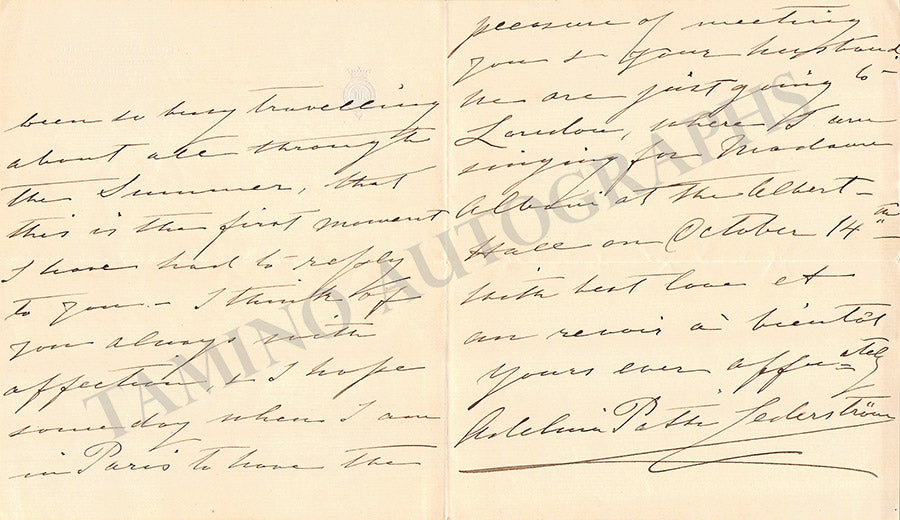 been so busy travelling
about all through
the Summer, that
this is the first moment
I have had to reply
to you. – I think of
you always with
affection, & I hope
some day when I am
in Paris to have the
pleasure of meeting
you & your husband.
We are just going to
London, where I am
singing for Madame
Albani at the Albert
Hall on October 14th
With best love et
au revoir à bientôt
yours ever affectely
Adelina Patti Cederström
TAMINO AUTOGRAPHS